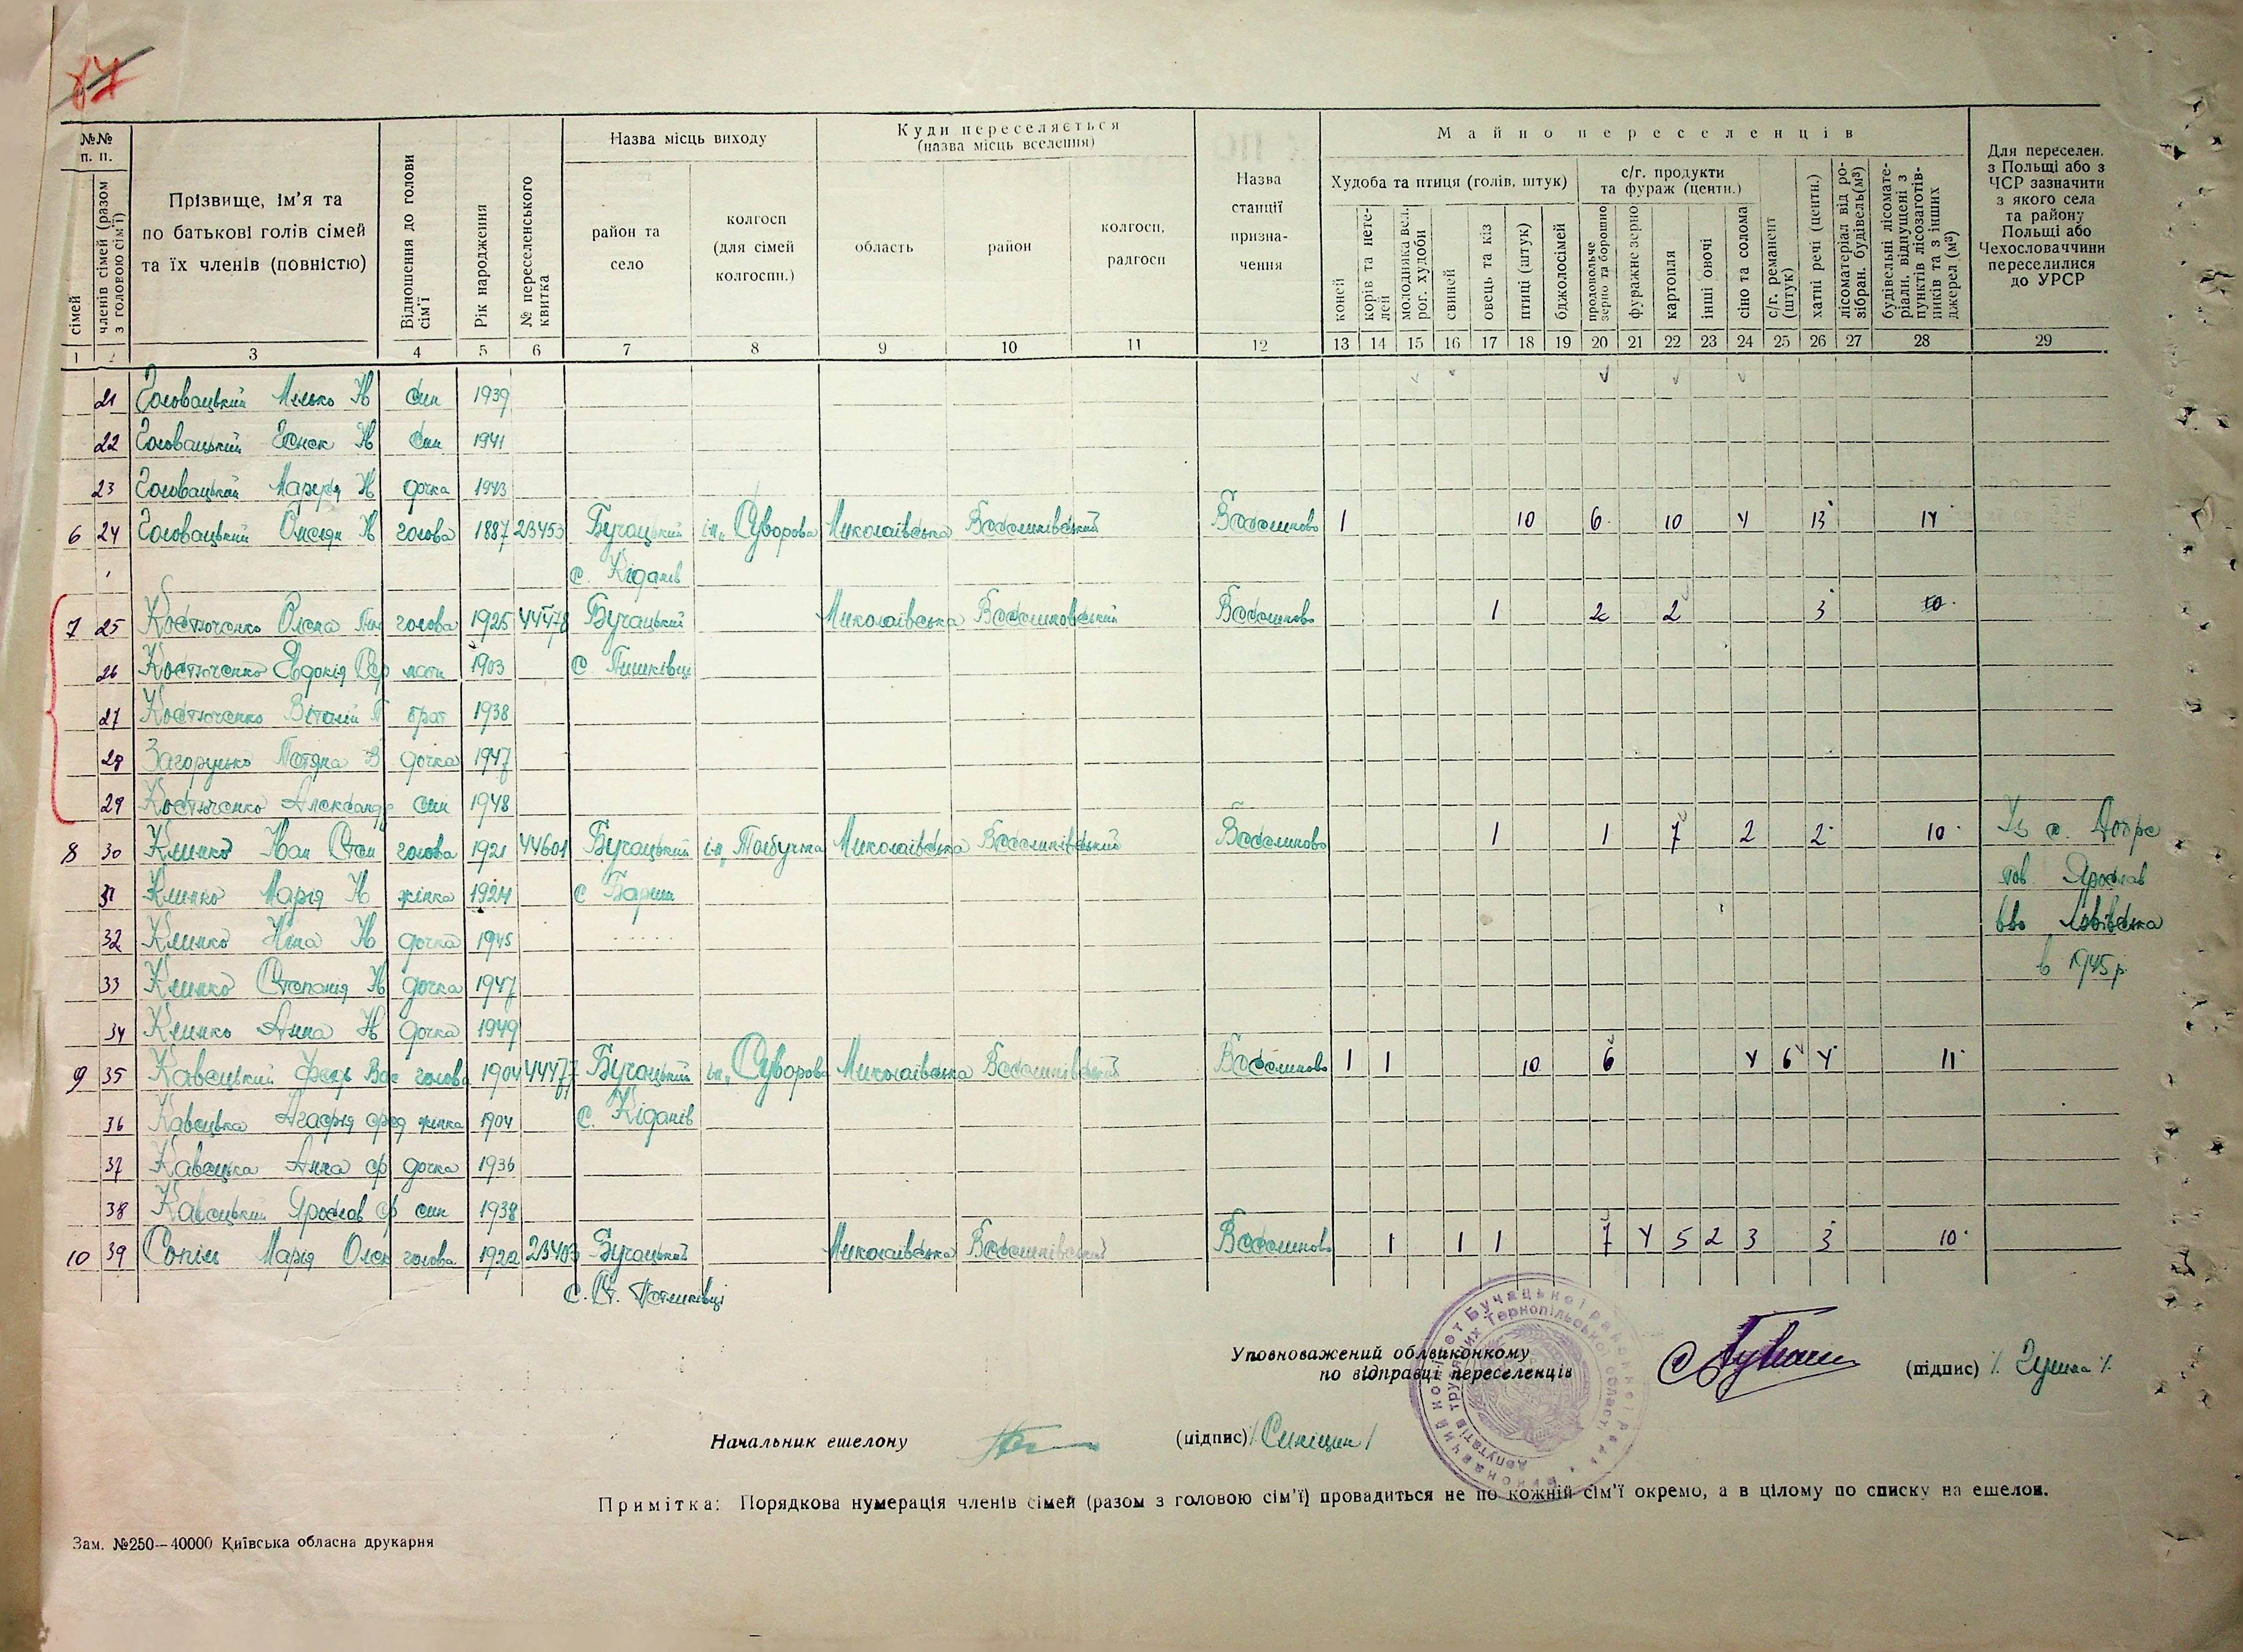 №№ п. п.
сімей
членів сімей (разом з головою сім'ї)
Прізвище, ім'я та
по батькові голів сімей
та їх членів (повністю)
Відношення до голови сім'ї
Рік народження
№ переселенського квитка
Назва місць виходу
район та
село
колгосп
(для сімей
колгоспн.)
Куди переселяється
(назва місць вселення)
область
район
колгосп,
радгосп
Назва
станції
призна-
чення
Майно переселенців
Худоба та птиця (голів, штук)
с/г. продукти
та фураж (центн.)
коней
корів та нете-
лей
молодняка вел.
рог. худоби
свиней
овець та кіз
птиці (штук)
бджолосімей
продовольче
зерно та борошно
фуражне зерно
картопля
інші овочі
сіно та солома
с/г. реманент
(штук)
хатні речі (центн.)
лісоматеріал від ро-
зібран. будівель(м³)
будівельні лісомате-
ріали, відпущені з
пунктів лісозаготів-
ників та з інших
джерел (м³)
Для переселен.
з Польщі або з
ЧСР зазначити
з якого села
та району
Польщі або
Чехословаччини
переселилися
до УРСР
1 2 3 4 5 6 7 8 9 10 11 12 13 14 15 16 17 18 19 20 21 22 23 24 25 26 27 28 29
21 Головацький Мілько Н син 1939
22 Головацький Н син 1941
23 Головацький Марія Н дочка 1943
6 24 Головацький Н голова 1887 23453 Бучацький ім. Суворова Миколаївська Веселинівський Веселиново 1 10 6 10 4 13 14
с. Кіданів
7 25 Костюченко Олена голова 1925 44478 Бучацький Миколаївська Веселиновський Веселиново 1 2 2 3 10
26 Костюченко Евдокія мати 1903 с. Пишківці
27 Костюченко Віталій П брат 1938
28 Загорулько Тетяна В дочка 1947
29 Костюченко Александр син 1948
8 30 Климко Іван Степ голова 1921 44601 Бучацький ім. Миколаївська Веселинівський Веселиново 1 1 7 2 2 10 Із с. Добре
31 Климко Марія Н жінка 1924 с Бариш пов. Ярослав
32 Климко Ніна Н дочка 1945 Львівська
33 Климко Степанія Н дочка 1947 в 1945р.
34 Климко Анна Н дочка 1949
9 35 Кавецький Федь Вас голова 1904 44477 Бучацький ім. Суворова Миколаївська Веселинівський Веселиново 1 1 10 6 4 6 4 11
36 Кавецька Агафія фед жінка 1904 с. Кіданів
37 Кавецька Анна ф дочка 1936
38 Кавецький Ярослав ф син 1938
10 39 Сопіль Марія Олек голова 1922 23403 Бучацький Миколаївська Веселинівський Веселиново 1 1 1 7 4 5 2 3 3 10
с. Ст. Петликівці
Уповноважений облвиконкому
по відправці переселенців
(підпис)
Начальник ешелону
(підпис) /Синіцин/
Примітка: Порядкова нумерація членів сімей (разом з головою сім'ї) провадиться не по кожній сім'ї окремо, а в цілому по списку на ешелон.
Зам. №250—40000 Київська обласна друкарня